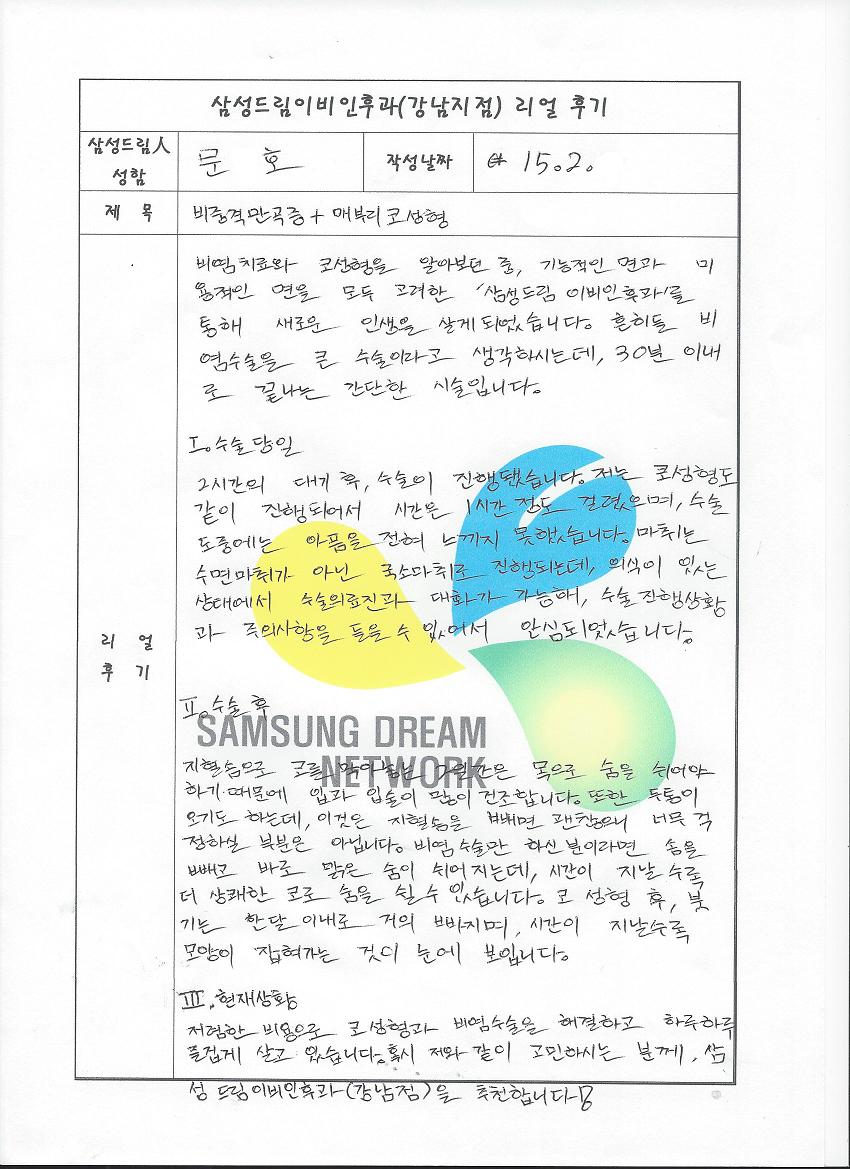 삼성드림이비인후과(강남지점) 리얼 후기
삼성드림人 성함
문 호
작성날짜
15.2.
제 목
비중격만곡증 + 매부리코성형
리 얼
후 기
비염치료와 코성형을 알아보던 중, 기능적인 면과 미
용적인 면을 모두 고려한 '삼성드림 이비인후과'를
통해 새로운 인생을 살게 되었습니다. 흔히들 비
염수술을 큰 수술이라고 생각하시는데, 30분 이내
로 끝나는 간단한 시술입니다.
I. 수술당일
2시간의 대기 후, 수술이 진행됐습니다. 저는 코성형도
같이 진행되어서 시간은 1시간 정도 걸렸으며, 수술
도중에는 아픔을 전혀 느끼지 못했습니다. 마취는
수면마취가 아닌 국소마취로 진행되는데, 의식이 있는
상태에서 수술의료진과 대화가 가능해, 수술 진행상황
과 주의사항을 들을 수 있어서 안심되었습니다.
II. 수술 후
SAMSUNG DREAM
NETWORK
지혈솜으로 코를 막아놓는 간은 목으로 숨을 쉬어야
하기 때문에 입과 입술이 많이 건조합니다. 또한 두통이
오기도 하는데, 이것은 지혈솜을 빼면 괜찮으니 너무 걱
정하실 부분은 아닙니다. 비염수술만 하신 분이라면 솜을
빼고 바로 맑은 숨이 쉬어지는데, 시간이 지날수록
더 상쾌한 코로 숨을 쉴 수 있습니다. 코 성형 후, 붓
기는 한달 이내로 거의 빠지며, 시간이 지날수록
모양이 잡혀가는 것이 눈에 보입니다.
III. 현재상황
저렴한 비용으로 코성형과 비염수술을 해결하고 하루하루
즐겁게 살고 있습니다. 혹시 저와 같이 고민하시는 분께, 삼
성 드림이비인후과(강남점)을 추천합니다